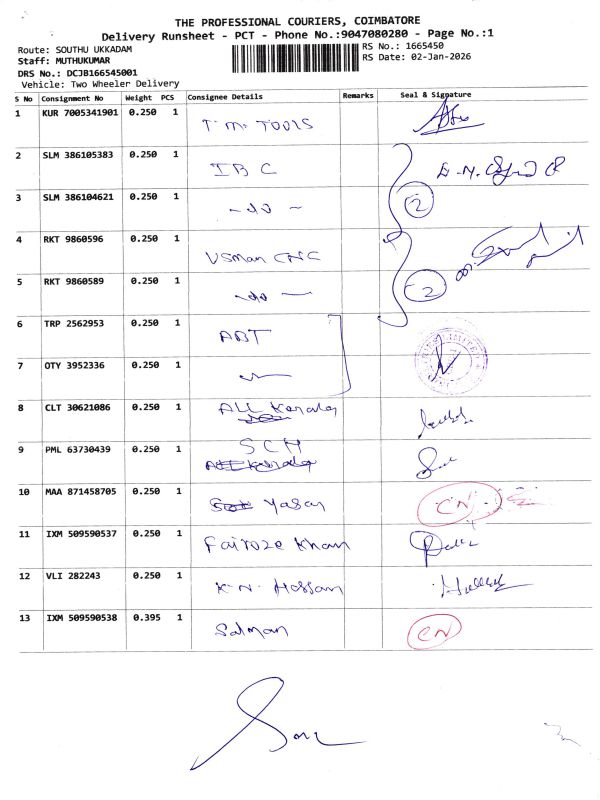 THE PROFESSIONAL COURIERS, COIMBATORE
Delivery Runsheet - PCT - Phone No.:9047080280 - Page No.:1
Route: SOUTHU UKKADAM
RS No.: 1665450
Staff: MUTHUKUMAR
RS Date: 02-Jan-2026
DRS No.: DCJB166545001
Vehicle: Two Wheeler Delivery
S No Consignment No Weight PCS Consignee Details Remarks Seal & Signature
1 KUR 7005341901 0.250 1 T.M. TOOLS
2 SLM 386105383 0.250 1 IBC
3 SLM 386104621 0.250 1 2
4 RKT 9860596 0.250 1 Usman CNC
5 RKT 9860589 0.250 1 2
6 TRP 2562953 0.250 1 ABT
7 OTY 3952336 0.250 1
8 CLT 30621086 0.250 1 ALL Kerala
9 PML 63730439 0.250 1 SCH
10 MAA 871458705 0.250 1 Yasar CN
11 IXM 509590537 0.250 1 Fairoze Khan
12 VLI 282243 0.250 1 K.N. Hassan
13 IXM 509590538 0.395 1 Salman CN